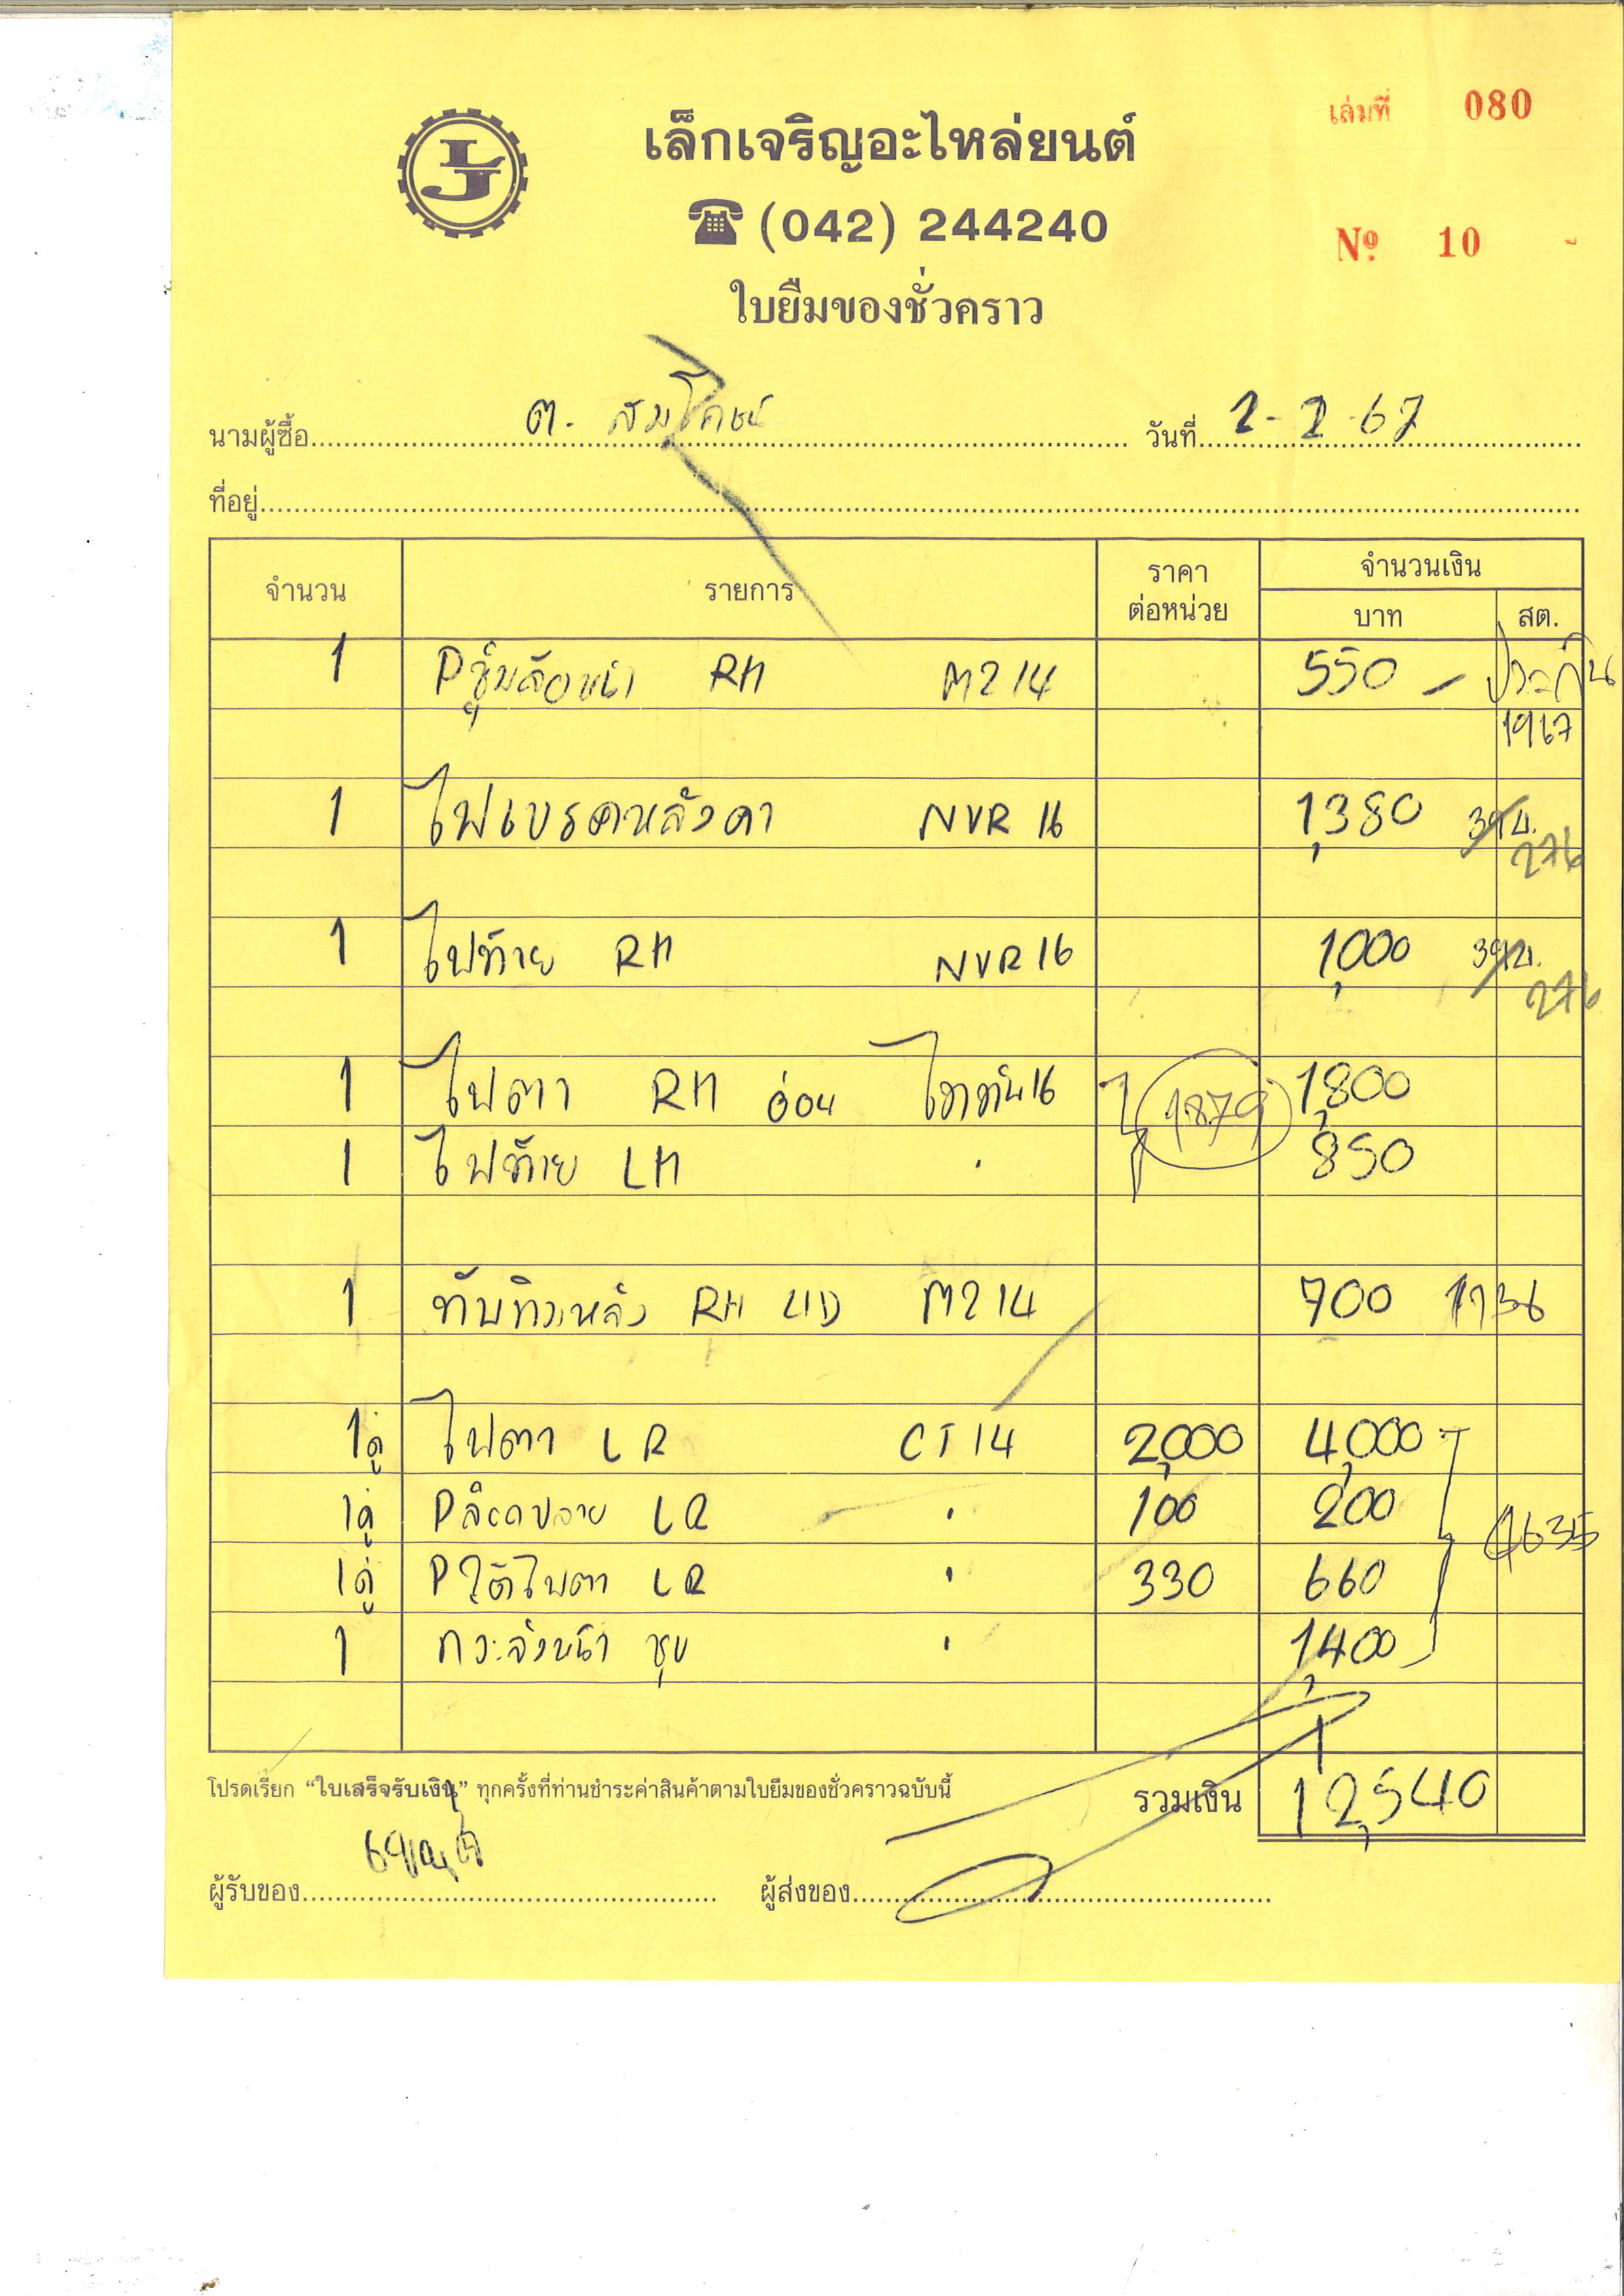 เล่มที่ 080
LJ
เล็กเจริญอะไหล่ยนต์
☎ (042) 244240
Nº 10
ใบยืมของชั่วคราว
นามผู้ซื้อ ต. วันที่ 2-2-67
ที่อยู่
จำนวน รายการ ราคาต่อหน่วย จำนวนเงิน บาท สต.
1 Pซุ้มล้อหน้า RH M214 550 - ประกัน
1967
1 ไฟเบรคหลังคา NVR 16 1,380
276
1 ไฟท้าย RH NVR 16 1,000
276
1 ไฟตา RH ไททัน16 1879 1,800
1 ไฟท้าย LH " 850
1 ทับทิมหลัง RH M214 700 1736
1คู่ ไฟตา LR CT 14 2,000 4,000
1คู่ LR " 100 200
1คู่ P ใต้ไฟตา LR " 330 660 4635
1 กระจังหน้า ชุบ " 1,400
โปรดเรียก “ใบเสร็จรับเงิน” ทุกครั้งที่ท่านชำระค่าสินค้าตามใบยืมของชั่วคราวฉบับนี้ รวมเงิน 12,540
ผู้รับของ ผู้ส่งของ